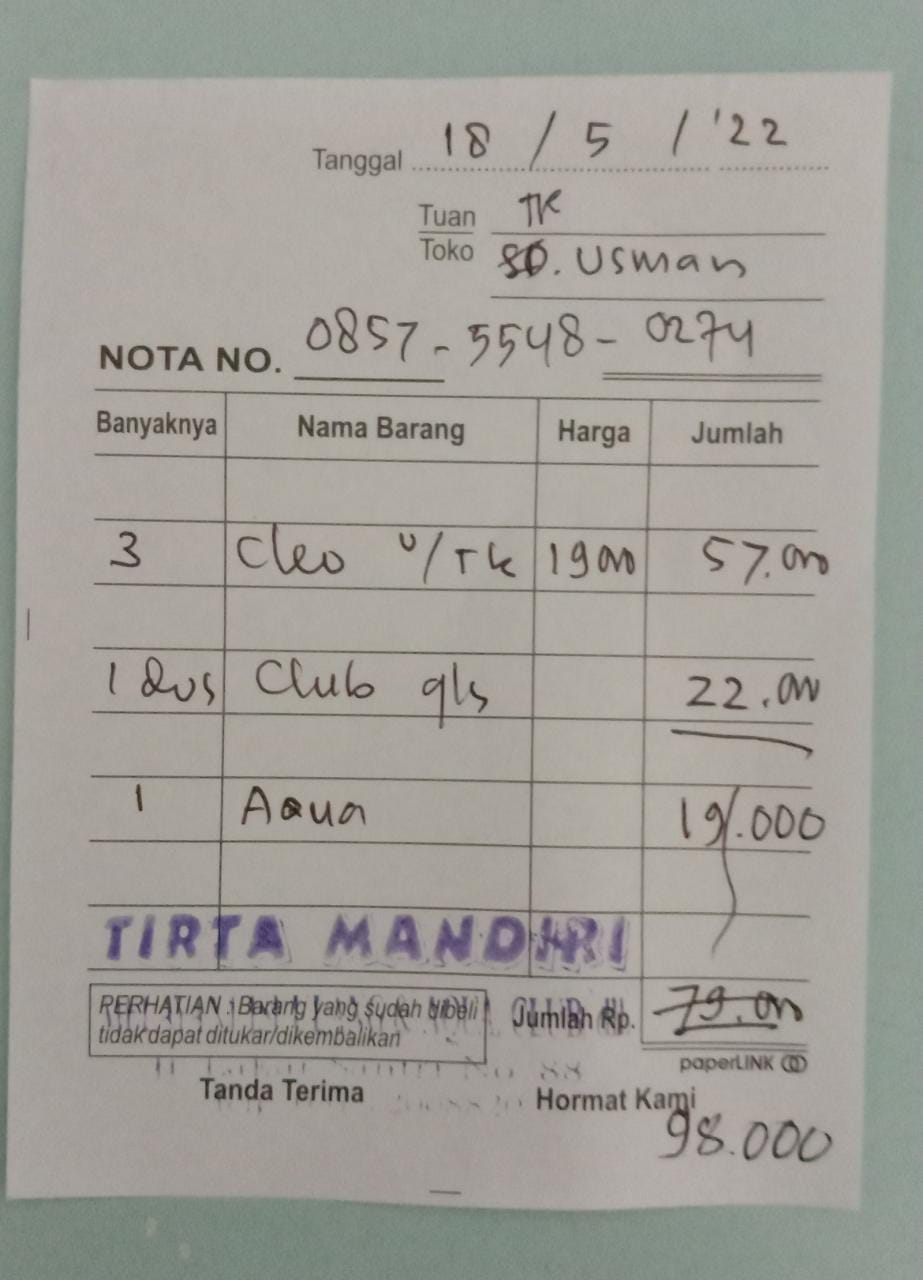 Tanggal 18 / 5 / '22
Tuan TK
Toko SD. Usman
NOTA NO. 0857-5548-0274
Banyaknya Nama Barang Harga Jumlah
3 Cleo u/Tk 19.000 57.000
1 Dus Club gls 22.000
1 Aqua 19.000
TIRTA MANDIRI
PERHATIAN : Barang yang sudah dibeli Jumlah Rp. 79.000
tidak dapat ditukar/dikembalikan
paperLINK
Tanda Terima Hormat Kami
98.000